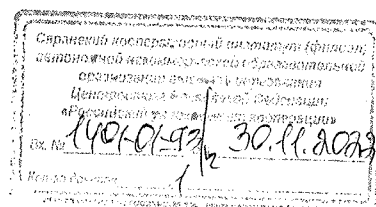 Саранский кооперативный институт (филиал)
автономной некоммерческой образовательной
организации высшего образования
Центросоюза Российской Федерации
«Российский университет кооперации»
Вх. № 1401-01-93/ 30.11.2022
1